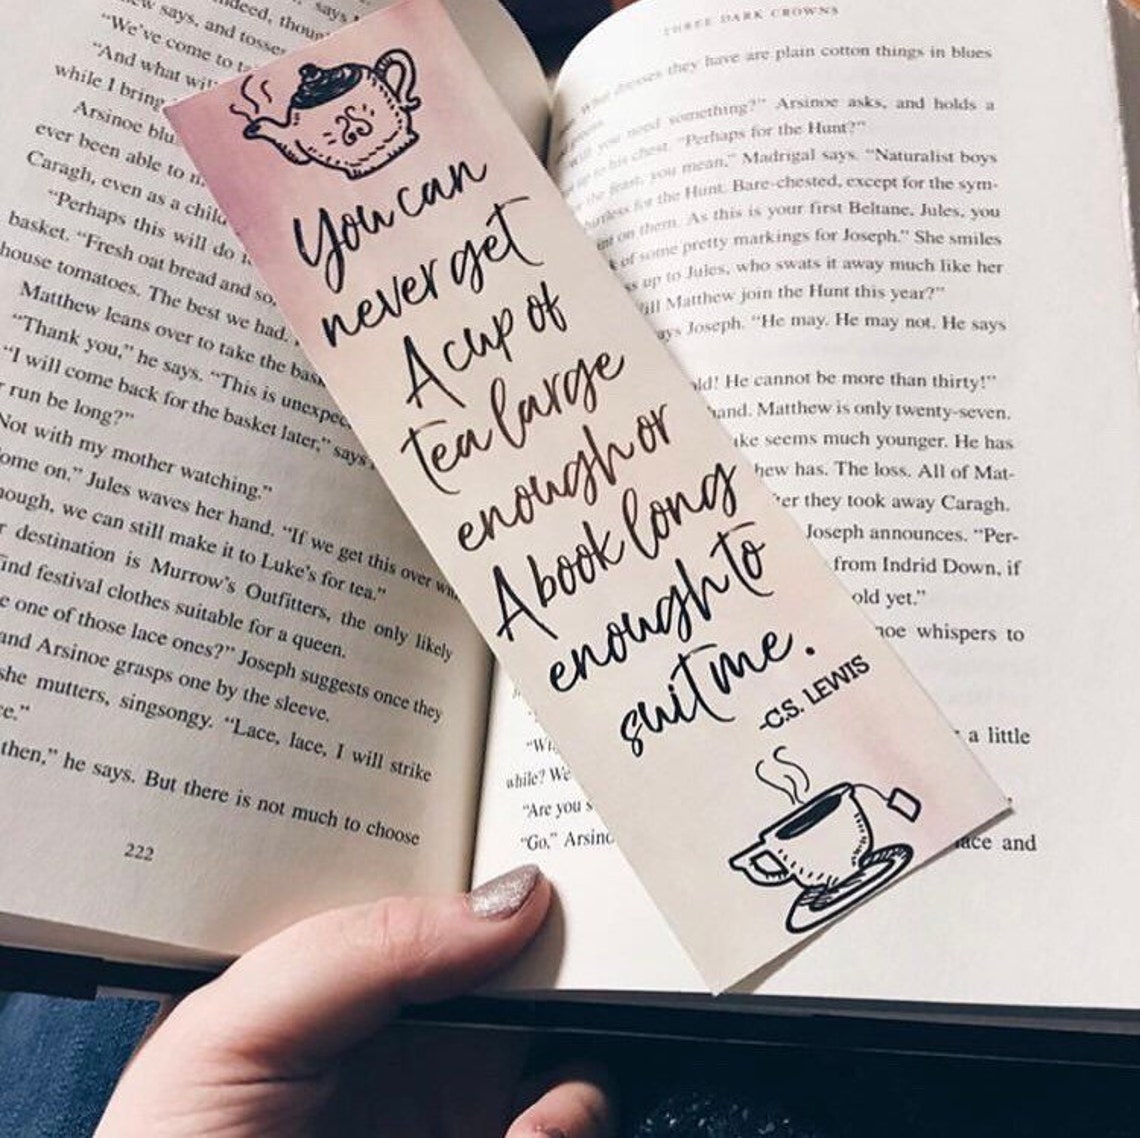 says
indeed, thou
says, and tosse
"We've come to
"And what wil
while I bring
Arsinoe blu
ever been able to
Caragh, even as a child
"Perhaps this will do
basket. "Fresh oat bread and
house tomatoes. The best we had.
Matthew leans over to take the
"Thank you," he says. "This is
"I will come back for the basket later," says
run be long?"
Not with my mother watching."
ome on." Jules waves her hand. "If we get this over
ough, we can still make it to Luke's for tea."
destination is Murrow's Outfitters, the only likely
find festival clothes suitable for a queen.
one of those lace ones?" Joseph suggests once they
and Arsinoe grasps one by the sleeve.
she mutters, singsongy. "Lace, lace, I will strike
ce."
then," he says. But there is not much to choose
222
You can
never get
A cup of
tea large
enough or
A book long
enough to
suit me.
-C.S. LEWIS
THREE DARK CROWNS
dresses they have are plain cotton things in blues
you need something?" Arsinoe asks, and holds a
up to his chest. "Perhaps for the Hunt?"
the feast, you mean," Madrigal says. "Naturalist boys
shirtless for the Hunt. Bare-chested, except for the sym-
on them. As this is your first Beltane, Jules, you
of some pretty markings for Joseph." She smiles
up to Jules, who swats it away much like her
ill Matthew join the Hunt this year?"
ays Joseph. "He may. He may not. He says
ld! He cannot be more than thirty!"
hand. Matthew is only twenty-seven.
ke seems much younger. He has
hew has. The loss. All of Mat-
er they took away Caragh.
Joseph announces. "Per-
from Indrid Down, if
old yet."
noe whispers to
a little
while? We
"Are you s
"Go," Arsino
ace and